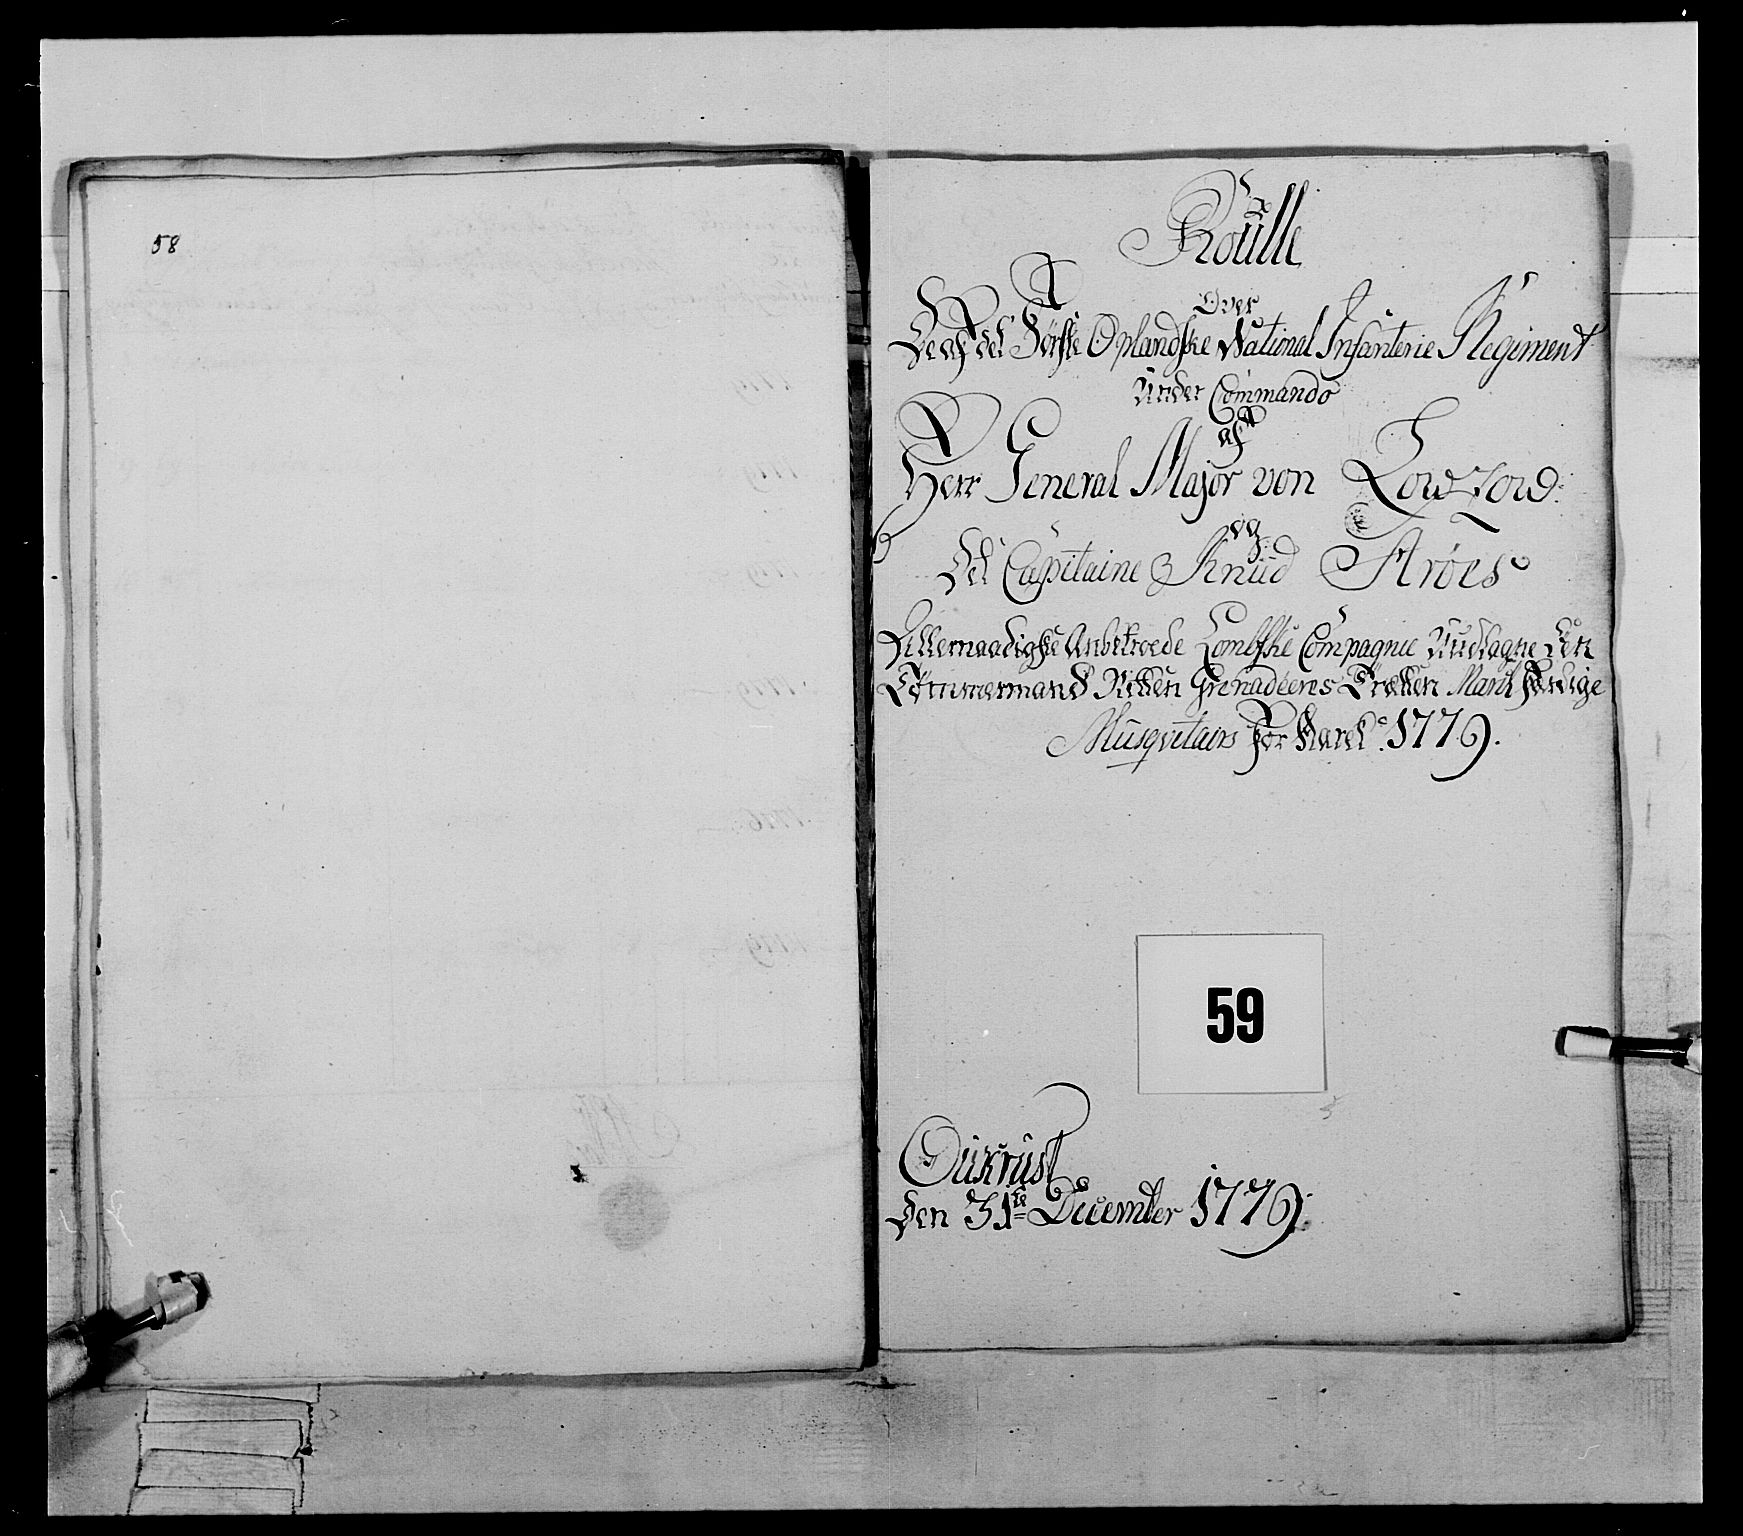 58
Roülle
Over
De af det Første Oplandske National Infanterie Regiment
Under Commando
af
Herr General Major von Lowzow
og
Det Capitaine Knüd Strøes
Allernaadigste Anbetroede Lombske Compagnie Uudtagne
Tømmermand Grenadeeres Mand færdige
Musqvitairs for Aaret 1779.
59
Oukrüst
den 31te December 1779.